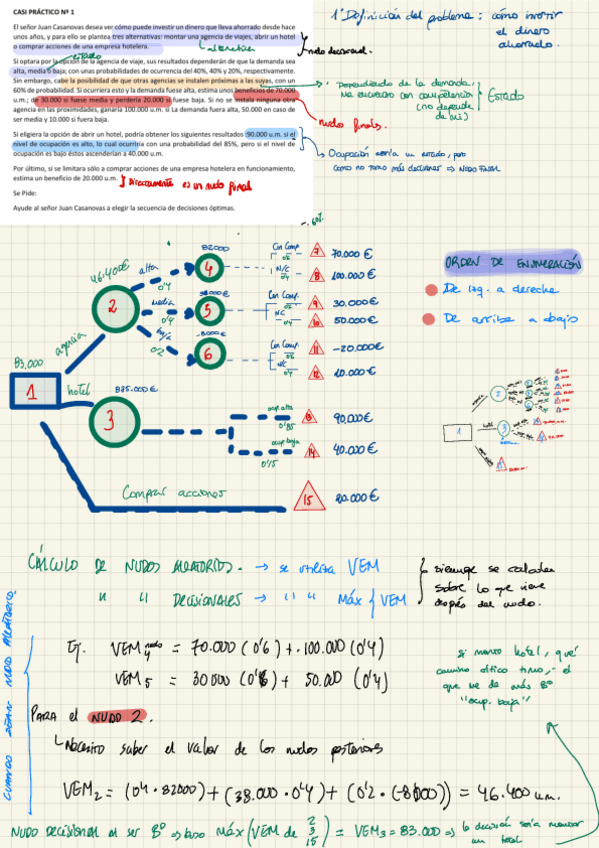 CASI PRÁCTICO Nº 1
El señor Juan Casanovas desea ver cómo puede investir un dinero que lleva ahorrado desde hace
unos años, y para ello se plantea tres alternativas: montar una agencia de viajes, abrir un hotel
o comprar acciones de una empresa hotelera.
alternativa
nudo decisional.
estado
Si optara por la opción de la agencia de viaje, sus resultados dependerán de que la demanda sea
alta, media o baja; con unas probabilidades de ocurrencia del 40%, 40% y 20%, respectivamente.
Sin embargo, cabe la posibilidad de que otras agencias se instalen próximas a las suyas, con un
60% de probabilidad. Si ocurriera esto y la demanda fuese alta, estima unos beneficios de 70.000
u.m.; de 30.000 si fuese media y perdería 20.000 si fuese baja. Si no se instala ninguna otra
agencia en las proximidades, ganaría 100.000 u.m. si La demanda fuera alta, 50.000 en caso de
ser media y 10.000 si fuera baja.
Si eligiera la opción de abrir un hotel, podría obtener los siguientes resultados: 90.000 u.m. si el
nivel de ocupación es alto, lo cual ocurriría con una probabilidad del 85%, pero si el nivel de
ocupación es bajo éstos ascenderían a 40.000 u.m.
Por último, si se limitara sólo a comprar acciones de una empresa hotelera en funcionamiento,
estima un beneficio de 20.000 u.m.
Directamente es un nudo final
Se Pide:
Ayude al señor Juan Casanovas a elegir la secuencia de decisiones óptimas.
1º Definición del problema: cómo invertir
el dinero
ahorrado.
Dependiendo de la demanda,
con competencia
(no depende
de mi)
Estado
nudos finales.
Ocupación sería un estado, pero
como no tomo más decisiones => NUDO FINAL
60%
ORDEN DE ENUMERACIÓN
De izq. a derecha
De arriba a abajo
83,000
1
agencia
hotel
Comprar acciones
46.400€
2
alta
0'4
media
0'4
baja
0'2
82000
4
38.000€
5
-8000€
6
Con Comp
0'6
N/C
0'4
7
70.000€
8
100.000€
Con Comp.
0'6
NC
0'4
9
30.000€
10
50.000€
Con Comp.
0'6
N/C
0'4
11
-20.000€
12
10.000€
3
ocup alta
0'85
ocup baja
0'15
13
90,000€
14
40.000€
15
20.000€
CÁLCULO DE NUDOS ALEATORIOS. → se utiliza VEM
" " DECISIONALES → " " MÁX { VEM
siempre se calculan
sobre lo que viene
después del nudo.
CUANDO SEAN NUDO ALEATORIO.
Ej. VEM nudo 4 = 70.000 (0'6) + 100.000 (0'4)
VEM5 = 30000 (0'6) + 50.000 (0'4)
PARA el NUDO 2.
Necesito saber el valor de los nudos posteriores
VEM2 = (0'4 · 82000) + (38.000 · 0'4) + (0'2 · (-8000)) = 46.400 u.m.
si monto hotel, qué
camino crítico
el
que me da más Bº
"ocup. baja"
NUDO DECISIONAL al ser Bº => busco MÁX (VEM de 2 3 15) = VEM3 = 83.000 => la decisión sería montar
un hotel